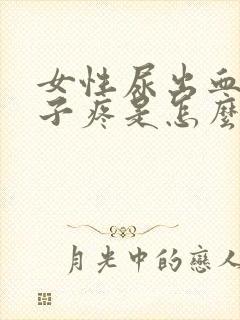 女性尿出血
子疼是怎麼
月光中的戀人